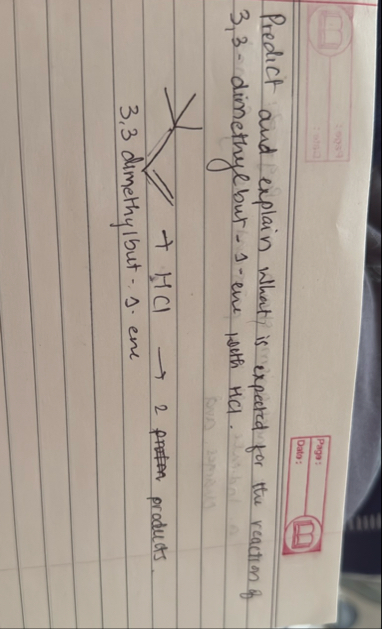 Page:
Date:
Predict and explain what is expected for the reaction of
3,3-dimethylbut-1-ene with HCl.
+ HCl → 2 products.
3,3 dimethylbut-1-ene